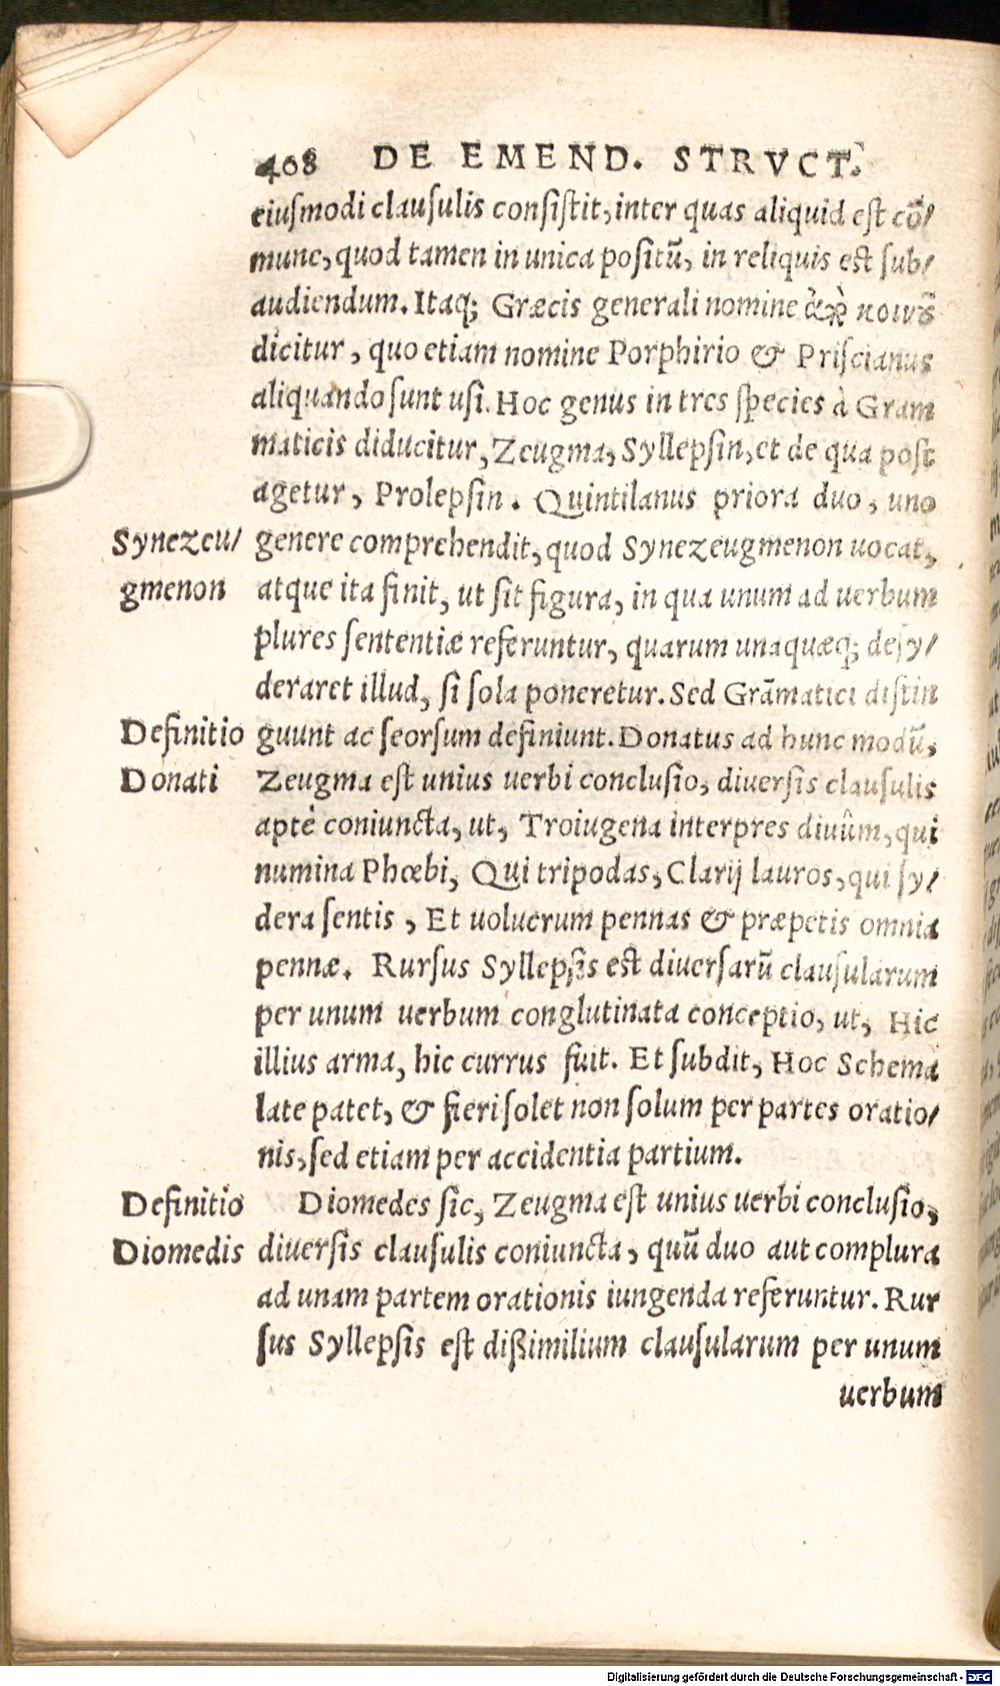 408 DE EMEND. STRVCT.
eiusmodi clausulis consistit, inter quas aliquid est cõ/
mune, quod tamen in unica positũ, in reliquis est sub/
audiendum. Itaq; Græcis generali nomine ἀπὸ κοινοῦ
dicitur, quo etiam nomine Porphirio & Priscianus
aliquando sunt usi. Hoc genus in tres species à Gram
maticis diducitur, Zeugma, Syllepsin, et de qua post
agetur, Prolepsin. Quintilanus priora duo, uno
Synezeu/ genere comprehendit, quod Synezeugmenon uocat,
gmenon atque ita finit, ut sit figura, in qua unum ad uerbum
plures sententiæ referuntur, quarum unaquæq; desy/
deraret illud, si sola poneretur. Sed Grãmatici distin
Definitio guunt ac seorsum definiunt. Donatus ad hunc modũ,
Donati Zeugma est unius uerbi conclusio, diuersis clausulis
aptè coniuncta, ut, Troiugena interpres diuûm, qui
numina Phœbi, Qui tripodas, Clarij lauros, qui sy/
dera sentis, Et uolucrum pennas & præpetis omnia
pennæ. Rursus Syllepsis est diuersarũ clausularum
per unum uerbum conglutinata conceptio, ut, Hic
illius arma, hic currus fuit. Et subdit, Hoc Schema
late patet, & fieri solet non solum per partes oratio/
nis, sed etiam per accidentia partium.
Definitio Diomedes sic, Zeugma est unius uerbi conclusio,
Diomedis diuersis clausulis coniuncta, quũ duo aut complura
ad unam partem orationis iungenda referuntur. Rur
sus Syllepsis est dißimilium clausularum per unum
uerbum
Digitalisierung gefördert durch die Deutsche Forschungsgemeinschaft - DFG